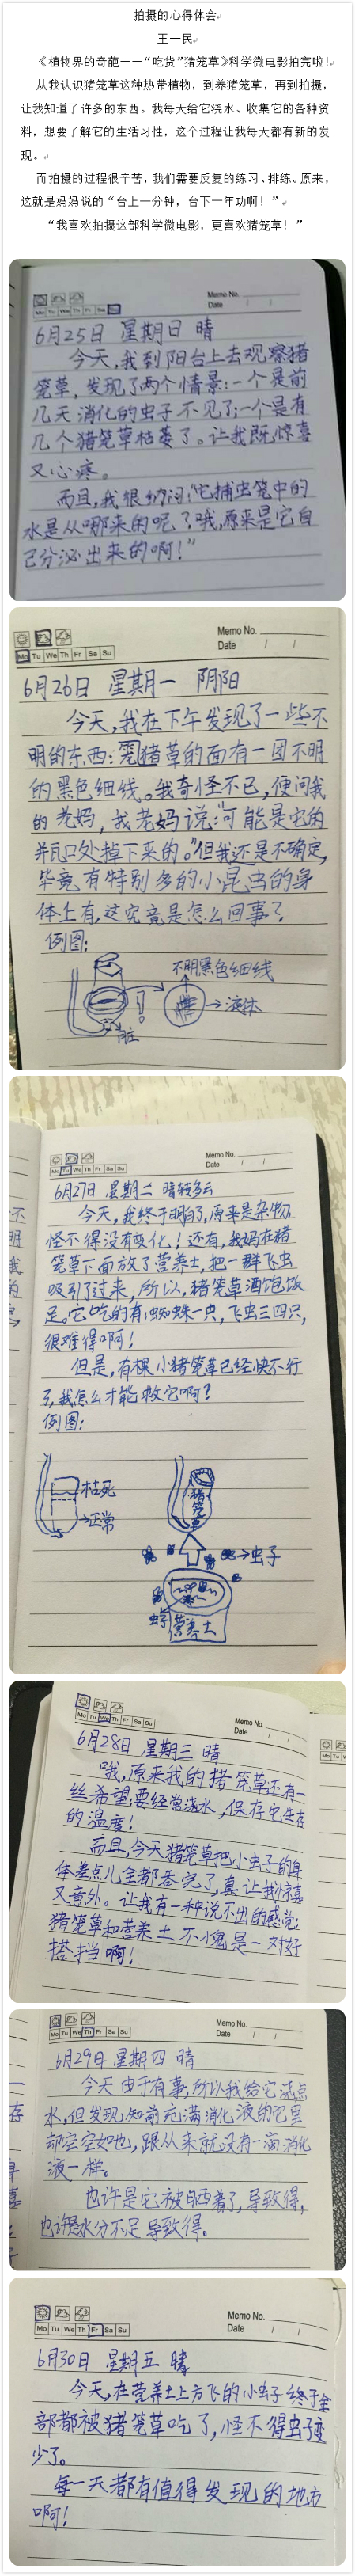 拍摄的心得体会
王一民
《植物界的奇葩——“吃货”猪笼草》科学微电影拍完啦！
从我认识猪笼草这种热带植物，到养猪笼草，再到拍摄，
让我知道了许多的东西。我每天给它浇水、收集它的各种资
料，想要了解它的生活习性，这个过程让我每天都有新的发
现。
而拍摄的过程很辛苦，我们需要反复的练习、排练。原来，
这就是妈妈说的“台上一分钟，台下十年功啊！”
“我喜欢拍摄这部科学微电影，更喜欢猪笼草！”
Memo No.
Mo Tu We Th Fr Sa Su
Date / /
6月25日 星期日 晴
今天，我到阳台上去观察猪
笼草，发现了两个情景：一个是前
几天消化的虫子不见了；一个是有
几个猪笼草枯萎了。让我既惊喜
又心疼。
而且，我很纳闷：“它捕虫笼中的
水是从哪来的呢？哦，原来是它自
己分泌出来的啊！”
Memo No.
Mo Tu We Th Fr Sa Su
Date / /
6月26日 星期一 阴阳
今天，我在下午发现了一些不
明的东西：猪草的面有一团不明
的黑色细线。我奇怪不已，便问我
的老妈，我老妈说：“可能是它的
瓶口处掉下来的。”但我还是不确定，
毕竟有特别多的小昆虫的身
体上有，这究竟是怎么回事？
例图：
不明黑色细线
液体
Memo No.
Mo Tu We Th Fr Sa Su
Date / /
6月27日 星期二 晴转多云
今天，我终于明白了，原来是杂物，
怪不得没有变化！还有，我妈在猪
笼草下面放了营养土，把一群飞虫
吸引了过来，所以，猪笼草酒饱饭
足。它吃的有：蜘蛛一只，飞虫三四只，
很难得啊！
但是，有棵小猪笼草已经快不行
了，我怎么才能救它啊？
例图：
枯死
正常
猪笼草
虫子
虫子
营养土
Mo Tu We Th Fr Sa Su
Memo No.
Date / /
6月28日 星期三 晴
“哦，原来我的猪笼草还有一
丝希望，要经常浇水，保存它生存
的温度！
而且，今天猪笼草把小虫子的身
体差点儿全都吞完了，真让我惊喜
又意外。让我有一种说不出的感觉：
猪笼草和营养土不愧是一对好
搭挡啊！
Memo No.
Mo Tu We Th Fr Sa Su
Date / /
6月29日 星期四 晴
今天由于有事，所以我给它浇点
水，但发现知前充满消化液的它里
却空空如也，跟从来就没有一滴消化
液一样。
也许是它被晒着了，导致得，
也许是水分不足导致得。
Memo No.
Mo Tu We Th Fr Sa Su
Date / /
6月30日 星期五 晴
今天，在营养土上方飞的小虫子终于全
部都被猪笼草吃了，怪不得虫子变
少了。
每一天都有值得发现的地方
啊！